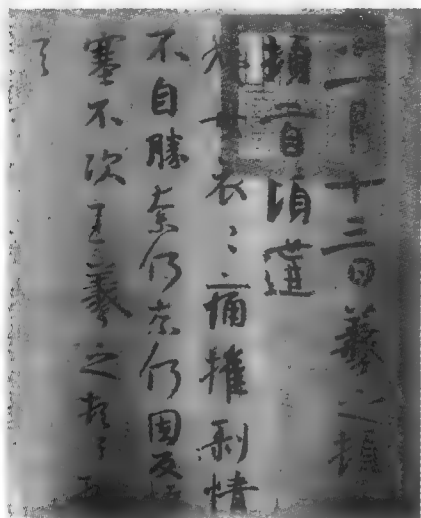 一月十三日羲之頓
頓首頃遘
姨母哀〻痛摧剥情
不自勝奈何奈何因反慘
塞不次王羲之頓首